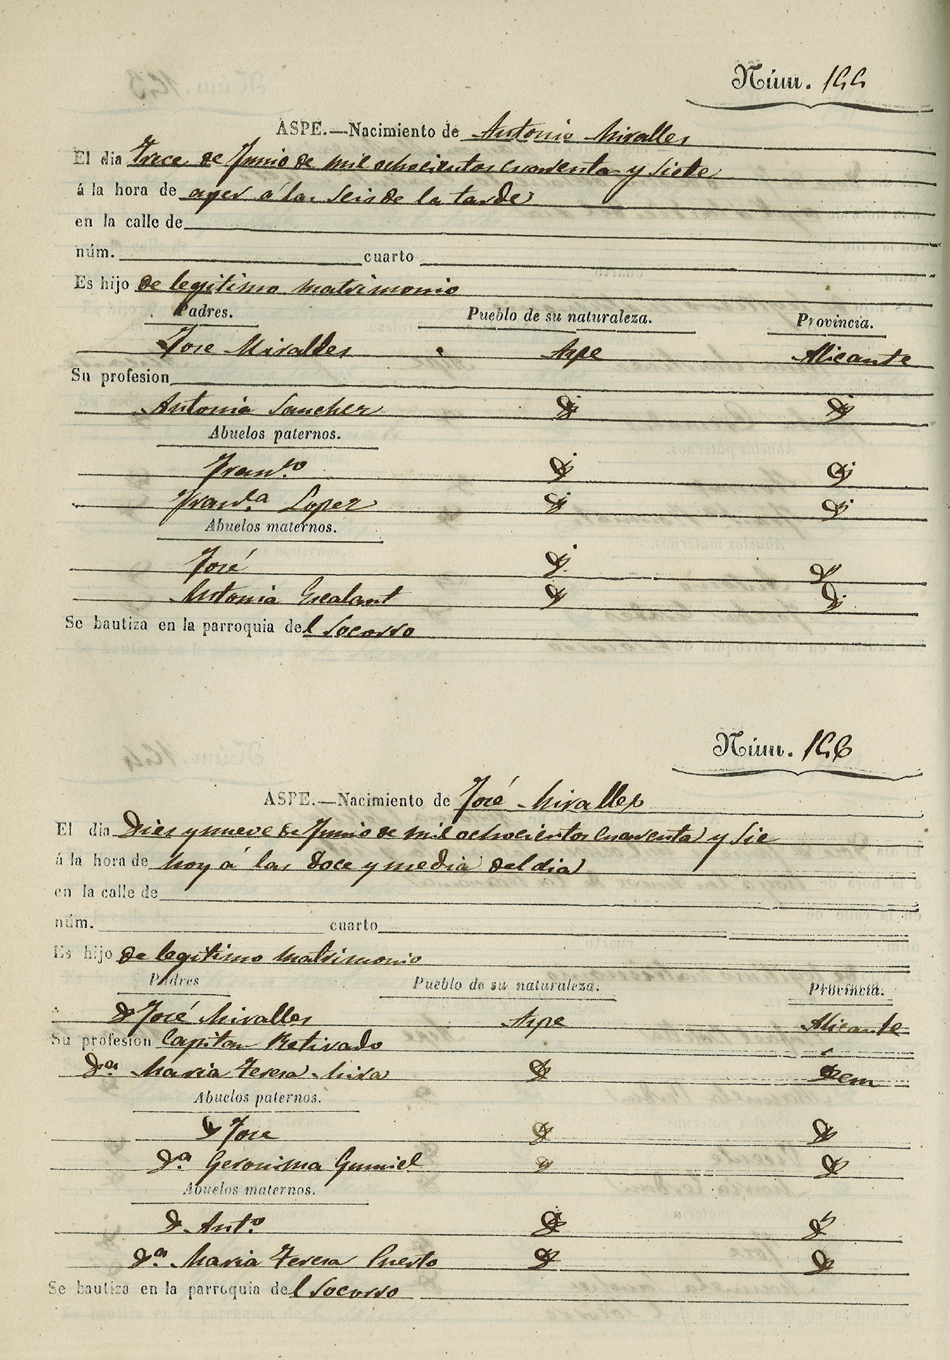 Núm. 144
ASPE.—Nacimiento de Antonio Miralles
El dia Trece de Junio de mil ochocientos cuarenta y siete
á la hora de ayer á las seis de la tarde
en la calle de
núm. cuarto
Es hijo de legitimo matrimonio
Padres. Pueblo de su naturaleza. Provincia.
Jose Miralles Aspe Alicante
Su profesion
Antonia Sanchez
Abuelos paternos.
Franco
Franca Lopez
Abuelos maternos.
José
Antonia Escalant
Se bautiza en la parroquia del Socorro
Núm.
ASPE.—Nacimiento de José Miralles
El dia Dies y nueve de Junio de mil ochocientos cuarenta y sie
á la hora de hoy á las doce y media del dia
en la calle de
núm. cuarto
Es hijo de legitimo matrimonio
Padres Pueblo de su naturaleza. Provincia.
Dn José Miralles Aspe Alicante
Su profesion Capitan Retirado
Da Maria Teresa Mira Idem
Abuelos paternos.
Dn Jose
Da Geronima Gumiel
Abuelos maternos.
Dn Anto
Da Maria Teresa Puerto
Se bautiza en la parroquia del Socorro